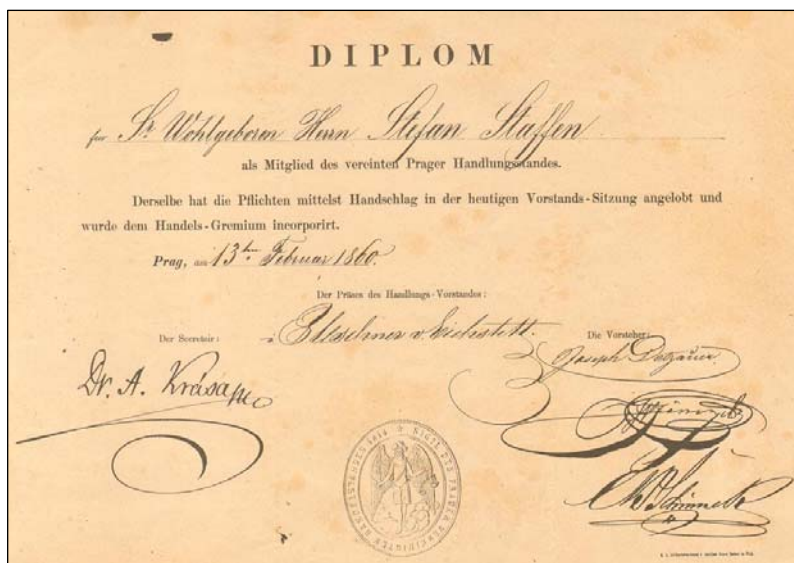 DIPLOM
für Sr Wohlgeboren Herrn Stefan Staffen
als Mitglied des vereinten Prager Handlungsstandes.
Derselbe hat die Pflichten mittelst Handschlag in der heutigen Vorstands-Sitzung angelobt und
wurde dem Handels-Gremium incorporirt.
Prag, am 13ten Februar 1860.
Der Präses des Handlungs-Vorstandes:
Der Secretair:
Die Vorsteher:
Joseph
Dr. A.